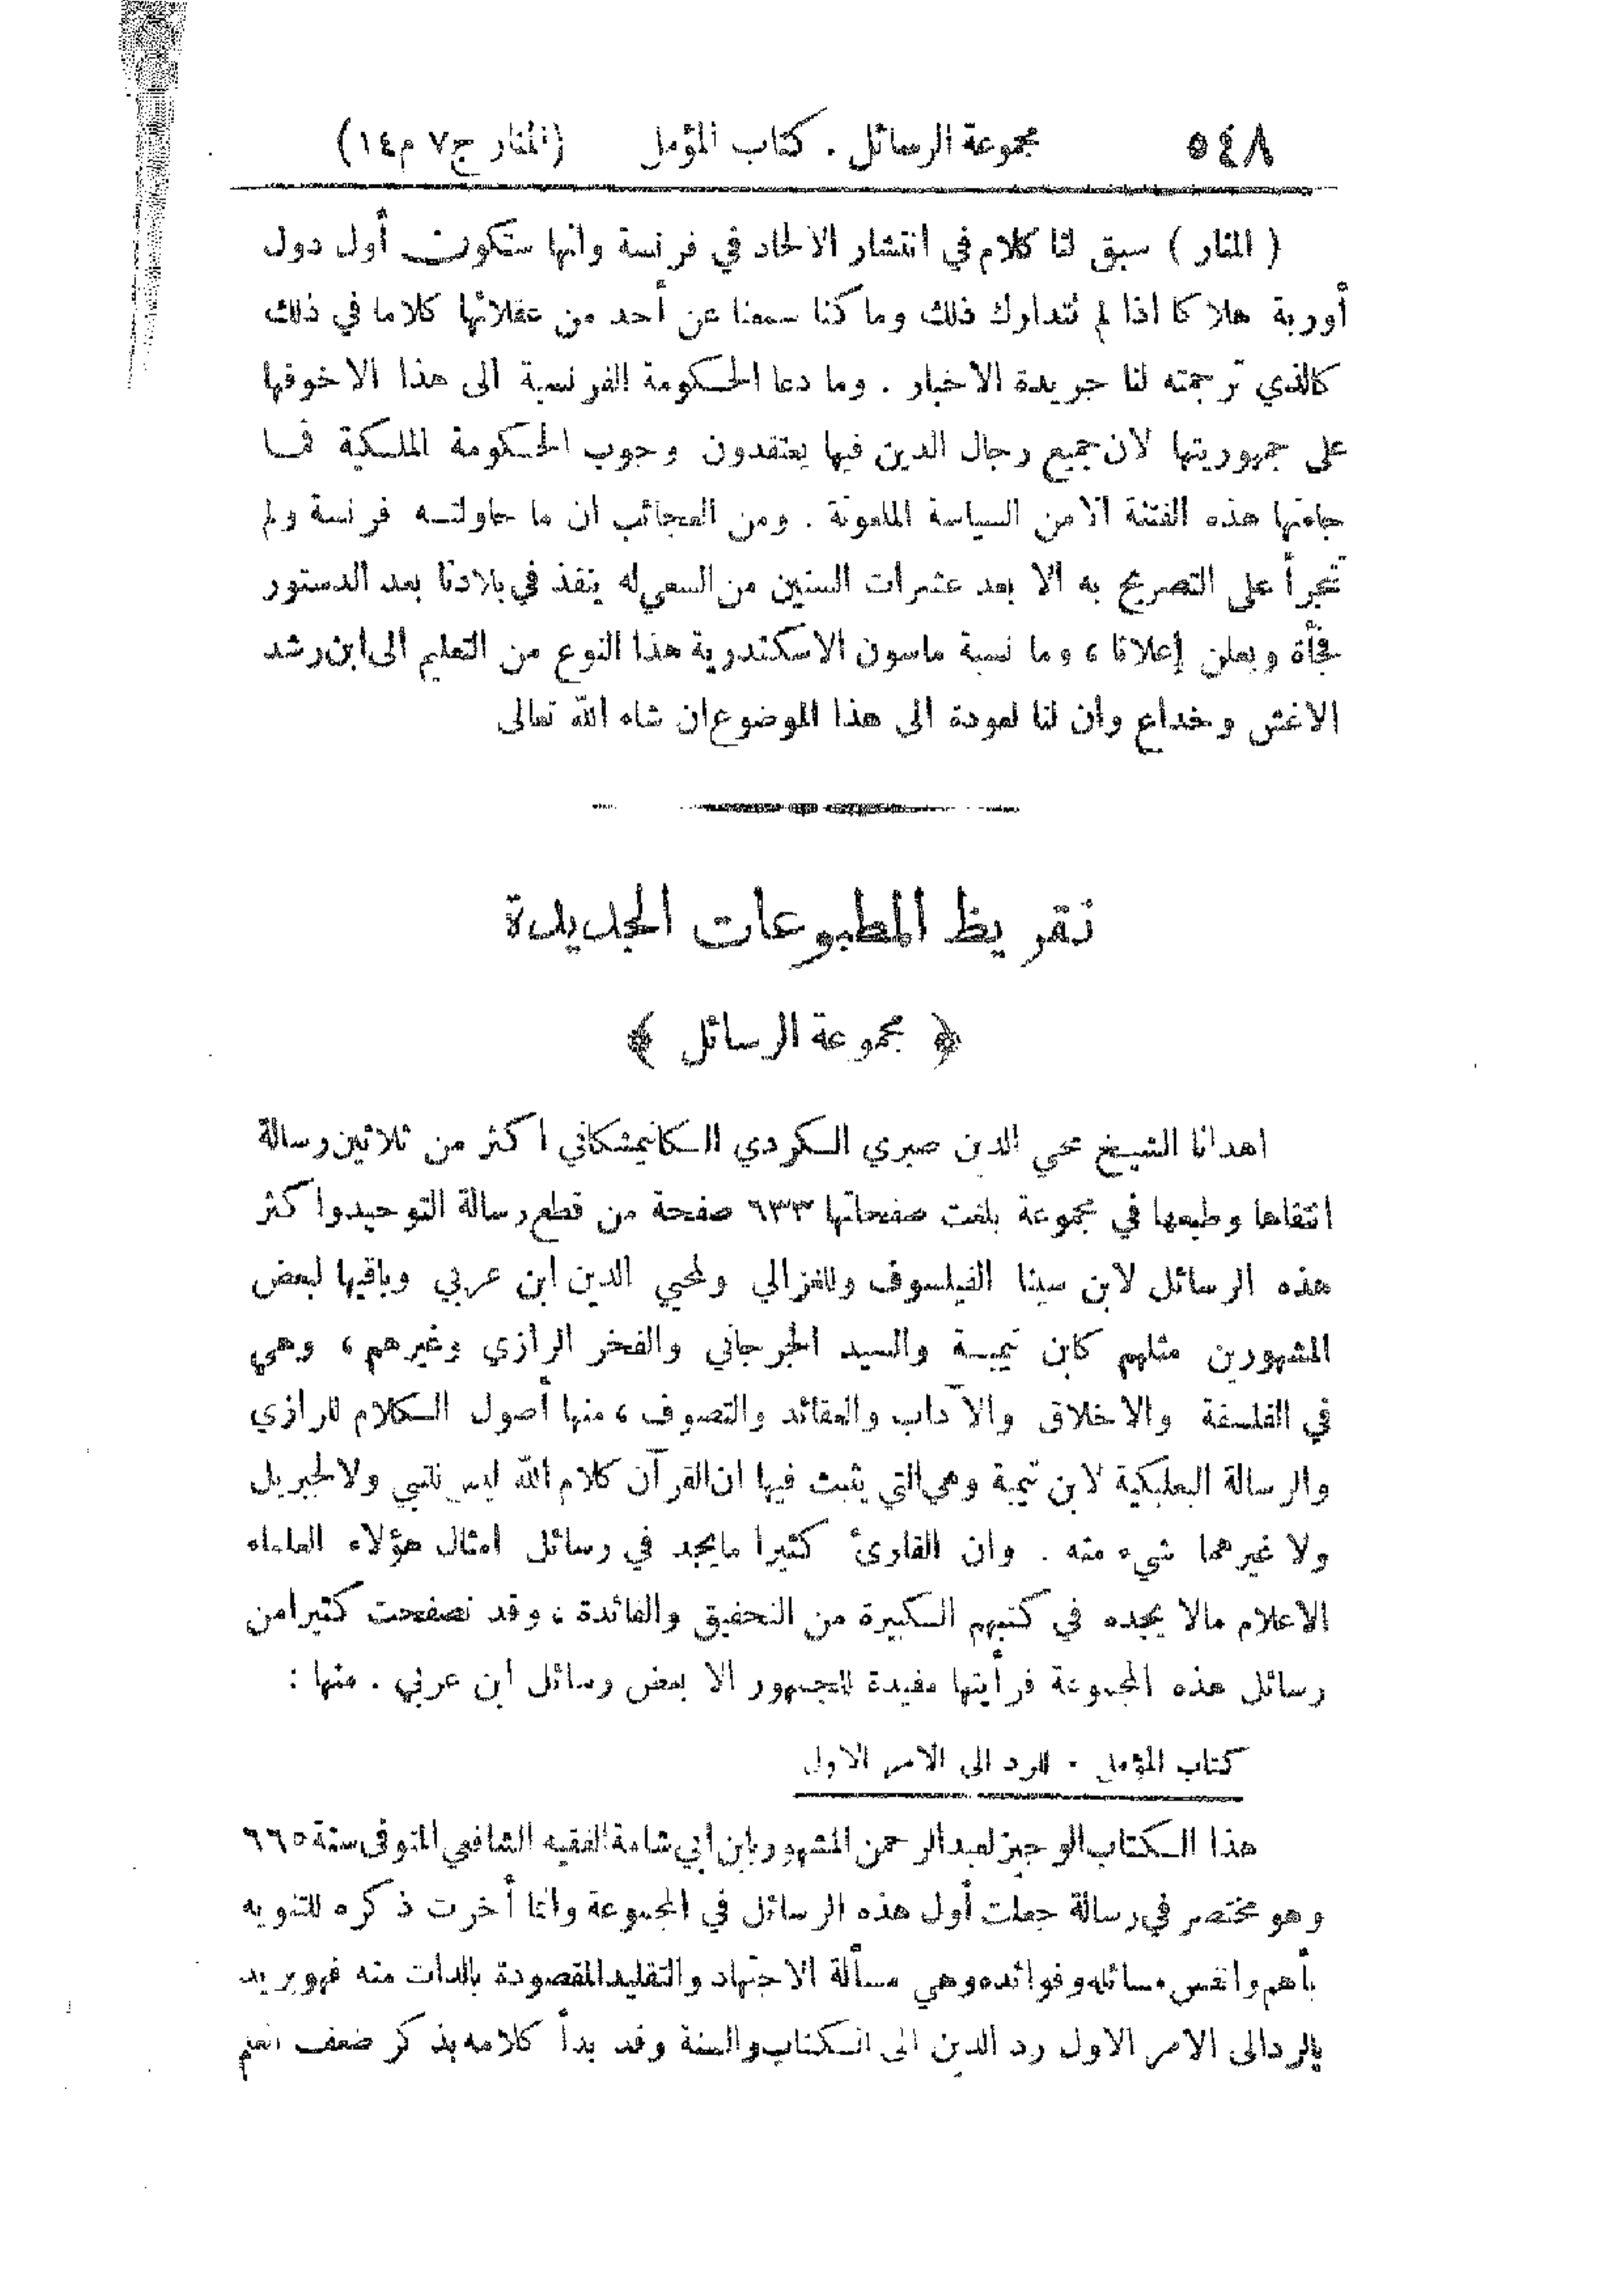 ٥٤٨ مجموعة الرسائل . كتاب المؤمل (المنار ج٧ م١٤)
( المنار ) سبق لنا كلام في انتشار الالحاد في فرنسة وانها ستكون أول دول
أوربة هلاكا اذا لم تتدارك ذلك وما كنا سمعنا عن أحد من عقلائها كلاما في ذلك
كالذي ترجمته لنا جريدة الاخبار . وما دعا الحكومة الفرنسية الى هذا الا خوفها
على جمهوريتها لان جميع رجال الدين فيها يعتقدون وجوب الحكومة الملكية فما
جاءتها هذه الفتنة الا من السياسة الملعونة . ومن العجائب ان ما حاولته فرنسة ولم
تتجرأ على التصريح به الا بعد عشرات السنين من السعي له ينفذ في بلادنا بعد الدستور
فجأة ويعلن إعلانا ، وما نسبة ماسون الاسكندرية هذا النوع من التعليم الى ابن رشد
الا غش وخداع وان لنا لعودة الى هذا الموضوع ان شاء الله تعالى
تقريظ المطبوعات الجديدة
﴿ مجموعة الرسائل ﴾
اهدانا الشيخ محي الدين صبري الكردي الكانيمشكاني اكثر من ثلاثين رسالة
انتقاها وطبعها في مجموعة بلغت صفحاتها ٦٣٣ صفحة من قطع رسالة التوحيد واكثر
هذه الرسائل لابن سينا الفيلسوف وللغزالي ولمحيي الدين ابن عربي وباقيها لبعض
المشهورين مثلهم كابن تيمية والسيد الجرجاني والفخر الرازي وغيرهم ، وهي
في الفلسفة والاخلاق والآداب والعقائد والتصوف ، منها أصول الكلام للرازي
والرسالة البعلبكية لابن تيمية وهي التي يثبت فيها ان القرآن كلام الله ليس لنبي ولا لجبريل
ولا غيرهما شيء منه . وان القارئ كثيرا مايجد في رسائل امثال هؤلاء العلماء
الاعلام مالا يجده في كتبهم الكبيرة من التحقيق والفائدة ، وقد تصفحت كثيرا من
رسائل هذه المجموعة فرأيتها مفيدة للجمهور الا بعض رسائل ابن عربي . منها :
كتاب المؤمل . للرد الى الامر الاول
هذا الكتاب الوجيز لعبد الرحمن المشهور بابن أبي شامة الفقيه الشافعي المتوفى سنة ٦٦٥
وهو مختصر في رسالة جعلت أول هذه الرسائل في المجموعة وانما أخرت ذكره للتنويه
بأهم وانفس مسائله وفوائده وهي مسألة الاجتهاد والتقليد المقصودة بالذات منه فهو يريد
بالرد الى الامر الاول رد الدين الى الكتاب والسنة وقد بدأ كلامه بذكر ضعف العلم